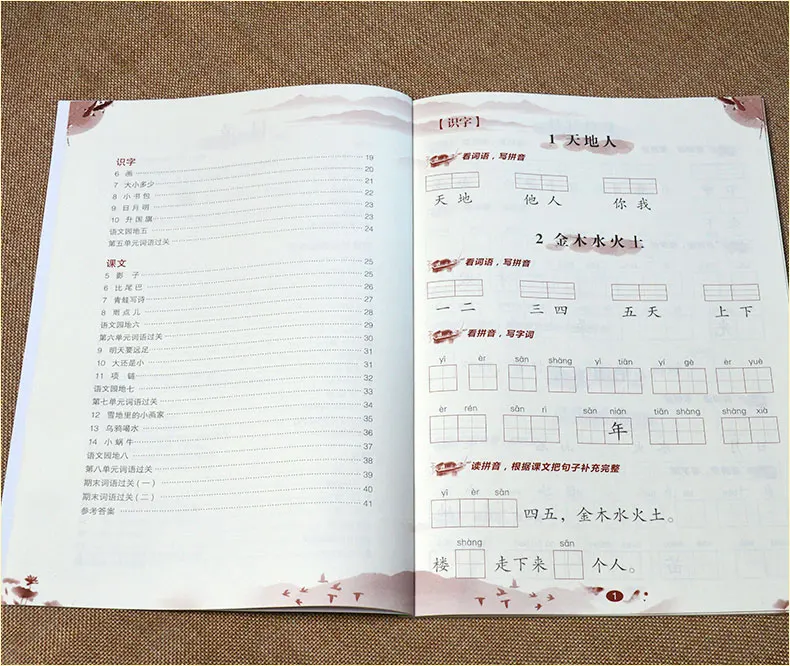 识字
6 画 19
7 大小多少 20
8 小书包 21
9 日月明 22
10 升国旗 23
语文园地五 23
第五单元词语过关 24
课文
5 影 子 25
6 比尾巴 25
7 青蛙写诗 26
8 雨点儿 27
语文园地六 28
第六单元词语过关 29
9 明天要远足 30
10 大还是小 31
11 项 链 31
语文园地七 32
第七单元词语过关 33
12 雪地里的小画家 34
13 乌鸦喝水 35
14 小蜗牛 36
语文园地八 37
第八单元词语过关 38
期末词语过关(一) 39
期末词语过关(二) 40
参考答案 41
【识字】
1 天地人
看词语，写拼音
天 地 他 人 你 我
2 金木水火土
看词语，写拼音
一 二 三 四 五 天 上 下
看拼音，写字词
yī èr sān shàng yì tiān yí gè èr yuè
èr rén sān rì sān nián tiān shàng shān xià
年
读拼音，根据课文把句子补充完整
yī èr sān
四五，金木水火土。
shàng sān
楼 走下来 个人。
1